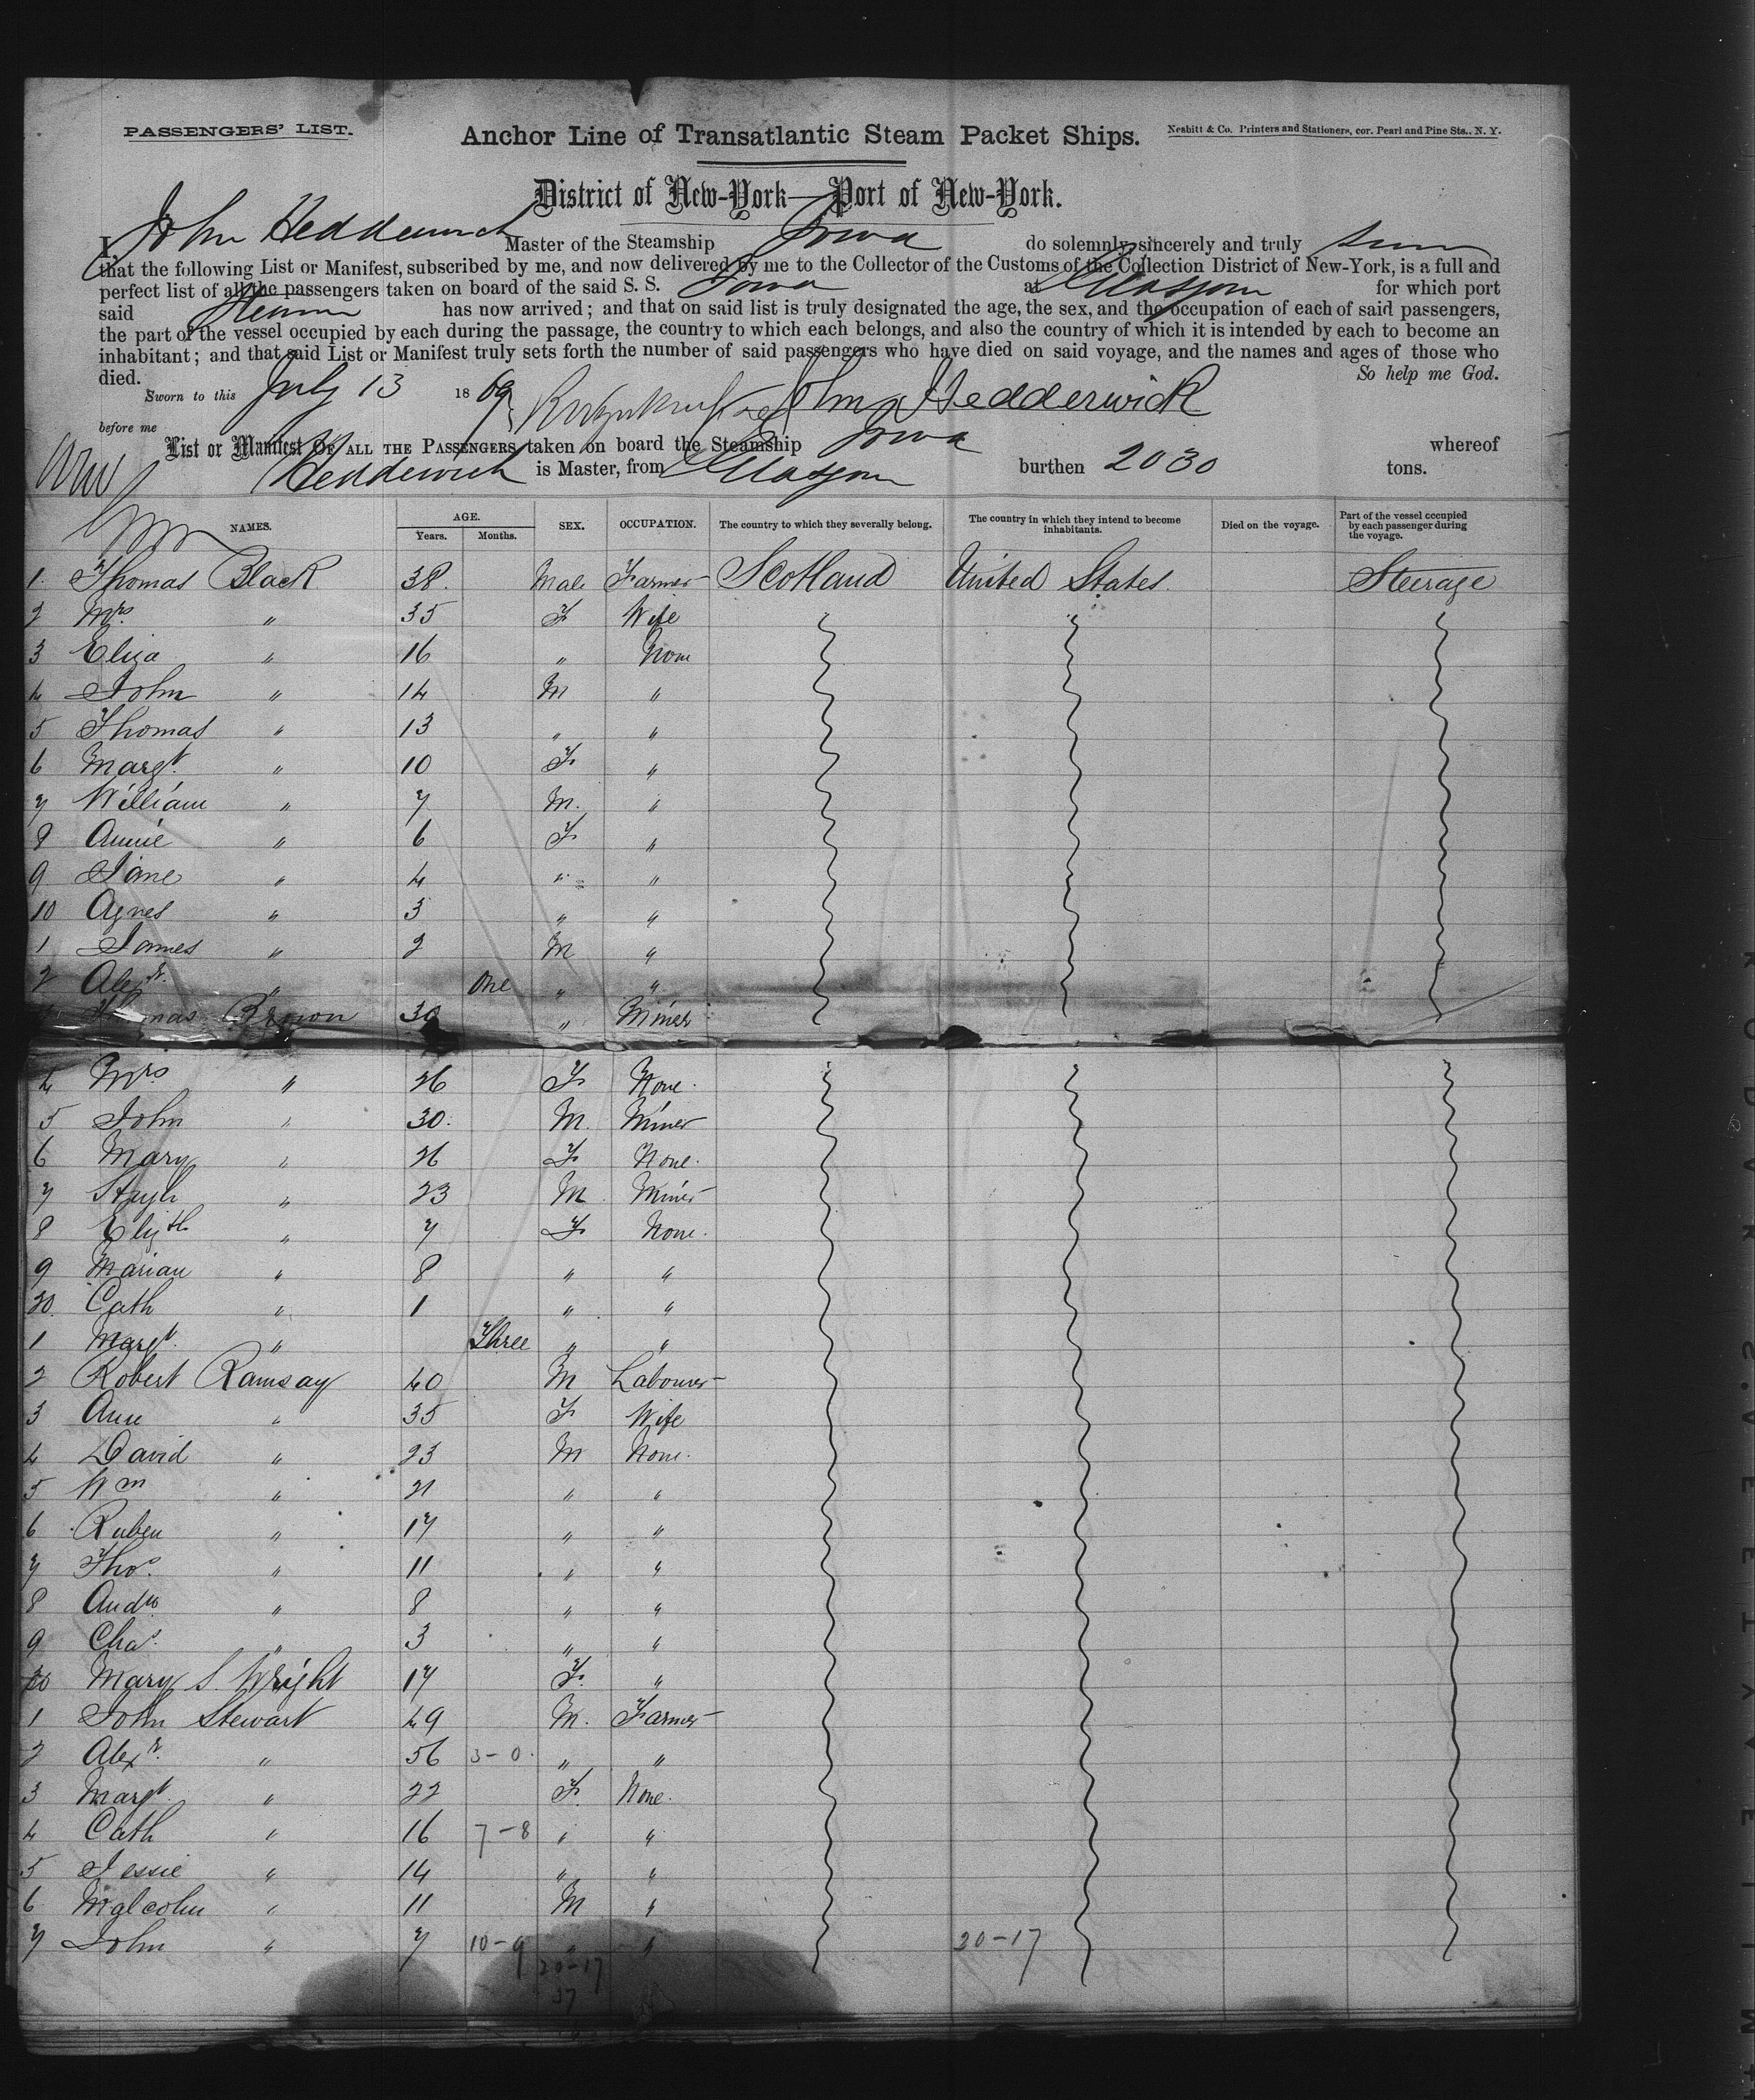 PASSENGERS' LIST.
Anchor Line of Transatlantic Steam Packet Ships.
Nesbitt & Co. Printers and Stationers, cor. Pearl and Pine Sts., N. Y.
District of New-York—Port of New-York.
I, John Hedderwick Master of the Steamship Iowa do solemnly, sincerely and truly swear
that the following List or Manifest, subscribed by me, and now delivered by me to the Collector of the Customs of the Collection District of New-York, is a full and
perfect list of all the passengers taken on board of the said S. S. Iowa at Glasgow for which port
said Steamer has now arrived; and that on said list is truly designated the age, the sex, and the occupation of each of said passengers,
the part of the vessel occupied by each during the passage, the country to which each belongs, and also the country of which it is intended by each to become an
inhabitant; and that said List or Manifest truly sets forth the number of said passengers who have died on said voyage, and the names and ages of those who
died. So help me God.
Sworn to this July 13 1869 John Hedderwick
before me
List or Manifest OF ALL THE PASSENGERS taken on board the Steamship Iowa whereof
Hedderwick is Master, from Glasgow burthen 2030 tons.
NAMES. AGE. Years. Months. SEX. OCCUPATION. The country to which they severally belong. The country in which they intend to become inhabitants. Died on the voyage. Part of the vessel occupied by each passenger during the voyage.
1 Thomas Black 38 Male Farmer Scotland United States Steerage
2 Mrs " 35 F Wife
3 Eliza " 16 " None
4 John " 14 M "
5 Thomas " 13 " "
6 Margt " 10 F "
7 William " 7 M. "
8 Annie " 6 F "
9 Jane " 4 " "
10 Agnes " 3 " "
1 James " 2 M "
2 Alexr " One " "
Thomas Brown 30 " Miner
4 Mrs " 26 F None
5 John " 30 M. Miner
6 Mary " 26 F None
7 Hugh " 23 M Miner
8 Elizth " 7 F None
9 Marian " 8 " "
20 Cath " 1 " "
1 Margt " Three " "
2 Robert Ramsay 40 M Labourer
3 Ann " 35 F Wife
4 David " 23 M None
5 Wm " 21 " "
6 Ruben " 17 " "
7 Thos " 11 " "
8 Andw " 8 " "
9 Chas " 3 " "
30 Mary S. Wright 17 F. "
1 John Stewart 49 M. Farmer
2 Alexr " 56 3-0 " "
3 Margt " 22 F None
4 Cath " 16 7-8 " "
5 Jessie " 14 " "
6 Malcolm " 11 M "
7 John " 7 10-9 " " 20-17
20-17
37